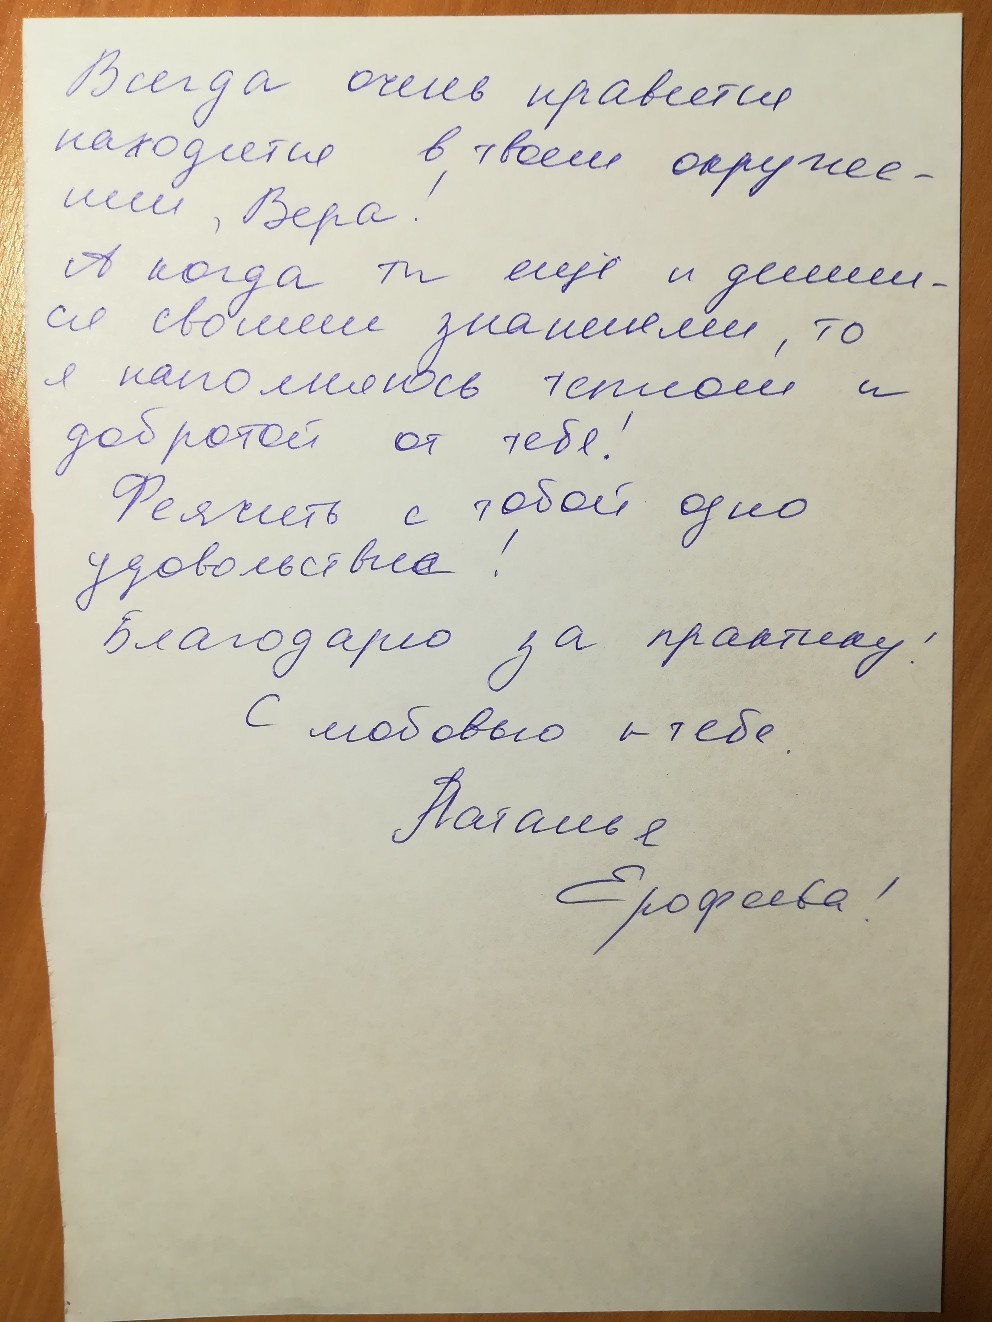 Всегда очень нравится
находится в твоем окруже-
нии, Вера!
А когда ты ещё и делиш-
ся своими знаниями, то
я наполняюсь теплом и
добротой от тебя!
Феячить с тобой одно
удовольствие!
Благодарю за практику!
С любовью к тебе.
Наталья
Ерофеева!